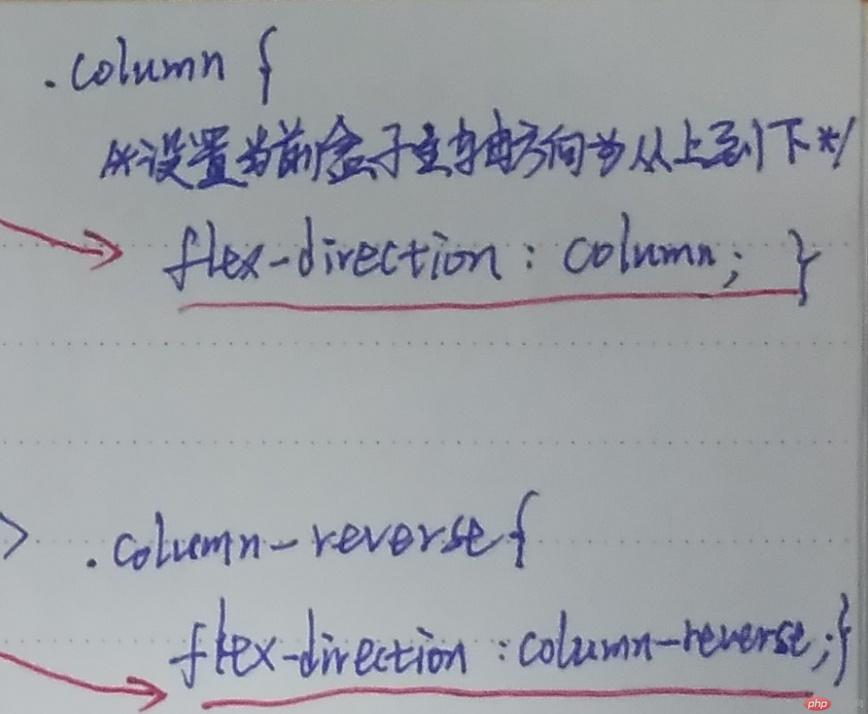 .column {
/*设置当前盒子主轴方向为从上到下*/
flex-direction : column; }
> .column-reverse{
flex-direction :column-reverse;}
php